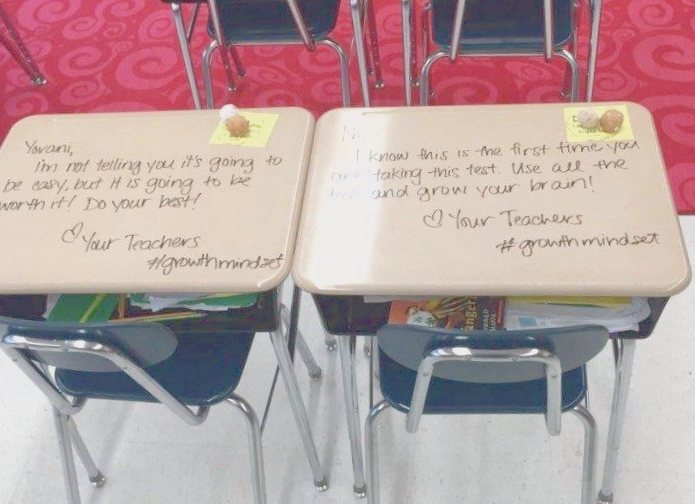 Yovani,
I'm not telling you it's going to
be easy, but it is going to be
worth it! Do your best!
♡ Your Teachers
#growthmindset
I know this is the first time you
taking this test. Use all the
and grow your brain!
♡ Your Teachers
#growthmindset